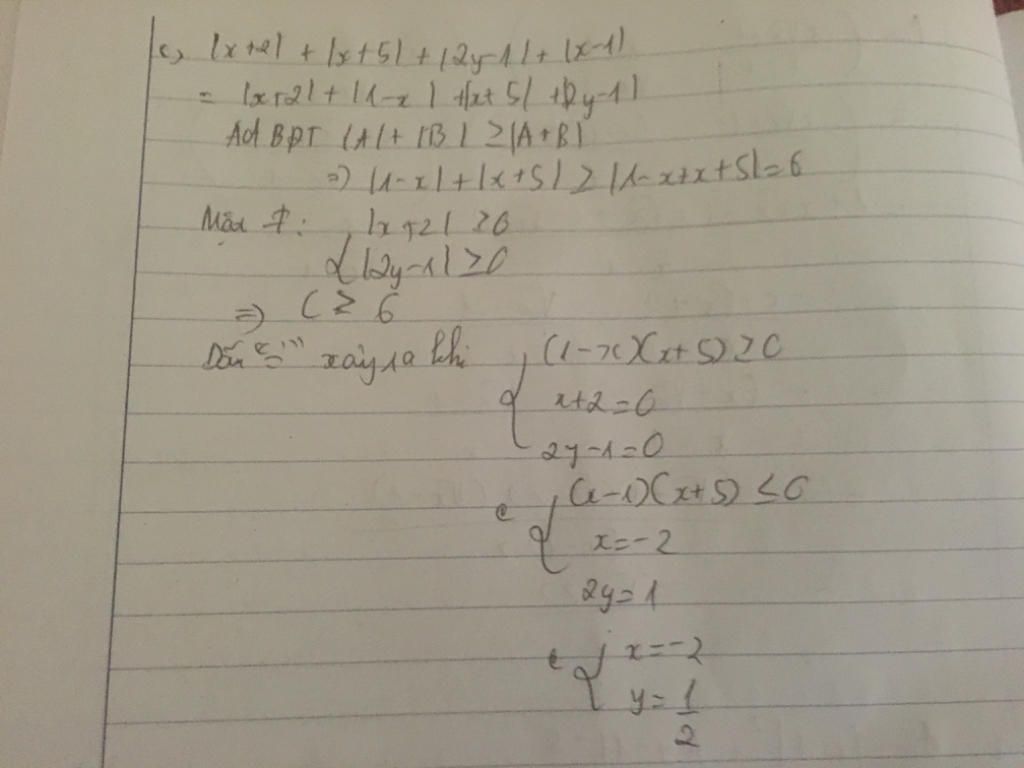 c, |x+2| + |x+5| + |2y-1| + |x-1|
= |x+2| + |1-x| + |x+5| + |2y-1|
Ad BĐT |A| + |B| ≥ |A+B|
=> |1-x| + |x+5| ≥ |1-x+x+5| = 6
Mặt ≠: { |x+2| ≥ 0
|2y-1| ≥ 0
=> C ≥ 6
Dấu "=" xảy ra khi { (1-x)(x+5) ≥ 0
x+2=0
2y-1=0
{ (x-1)(x+5) ≤ 0
x=-2
2y=1
{ x=-2
y=1/2